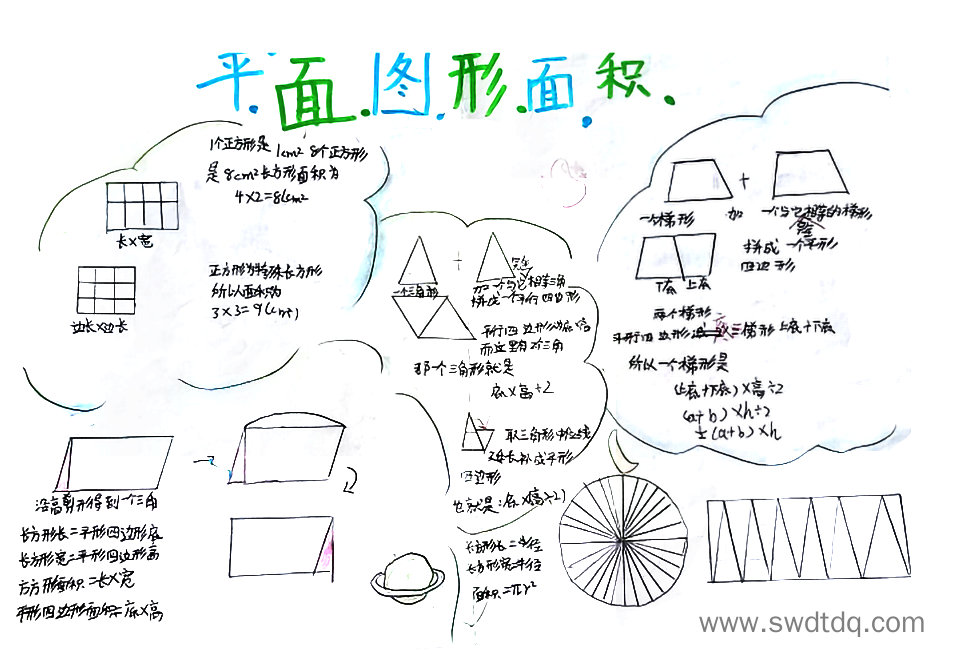 平面图形面积
1个正方形是1cm² 8个正方形
是8cm²长方形面积为
4×2=8cm²
长×宽
正方形为特殊长方形
所以面积为
3×3=9(cm²)
边长×边长
一个三角形
+
加一个与它相等三角
拼成一个平行四边形
平行四边形为底×高
而这里有2个三角
那一个三角形就是
底×高÷2
取三角形中位线
延长补成平形
四边形
也就是:底×(高÷2)
+
一个梯形
加
一个与它相等的梯形
完全
拼成一个平形
四边形
下底 上底
两个梯形
平行四边形
梯形上底+下底
所以一个梯形是
(上底+下底)×高÷2
(a+b)×h÷2
½(a+b)×h
沿高剪形得到一个三角
长方形长=平形四边形底
长方形宽=平形四边形高
方方形面积=长×宽
平形四边形面积=底×高
长方形长=半径
长方形宽=半径
面积=πr²
www.swdtdq.com